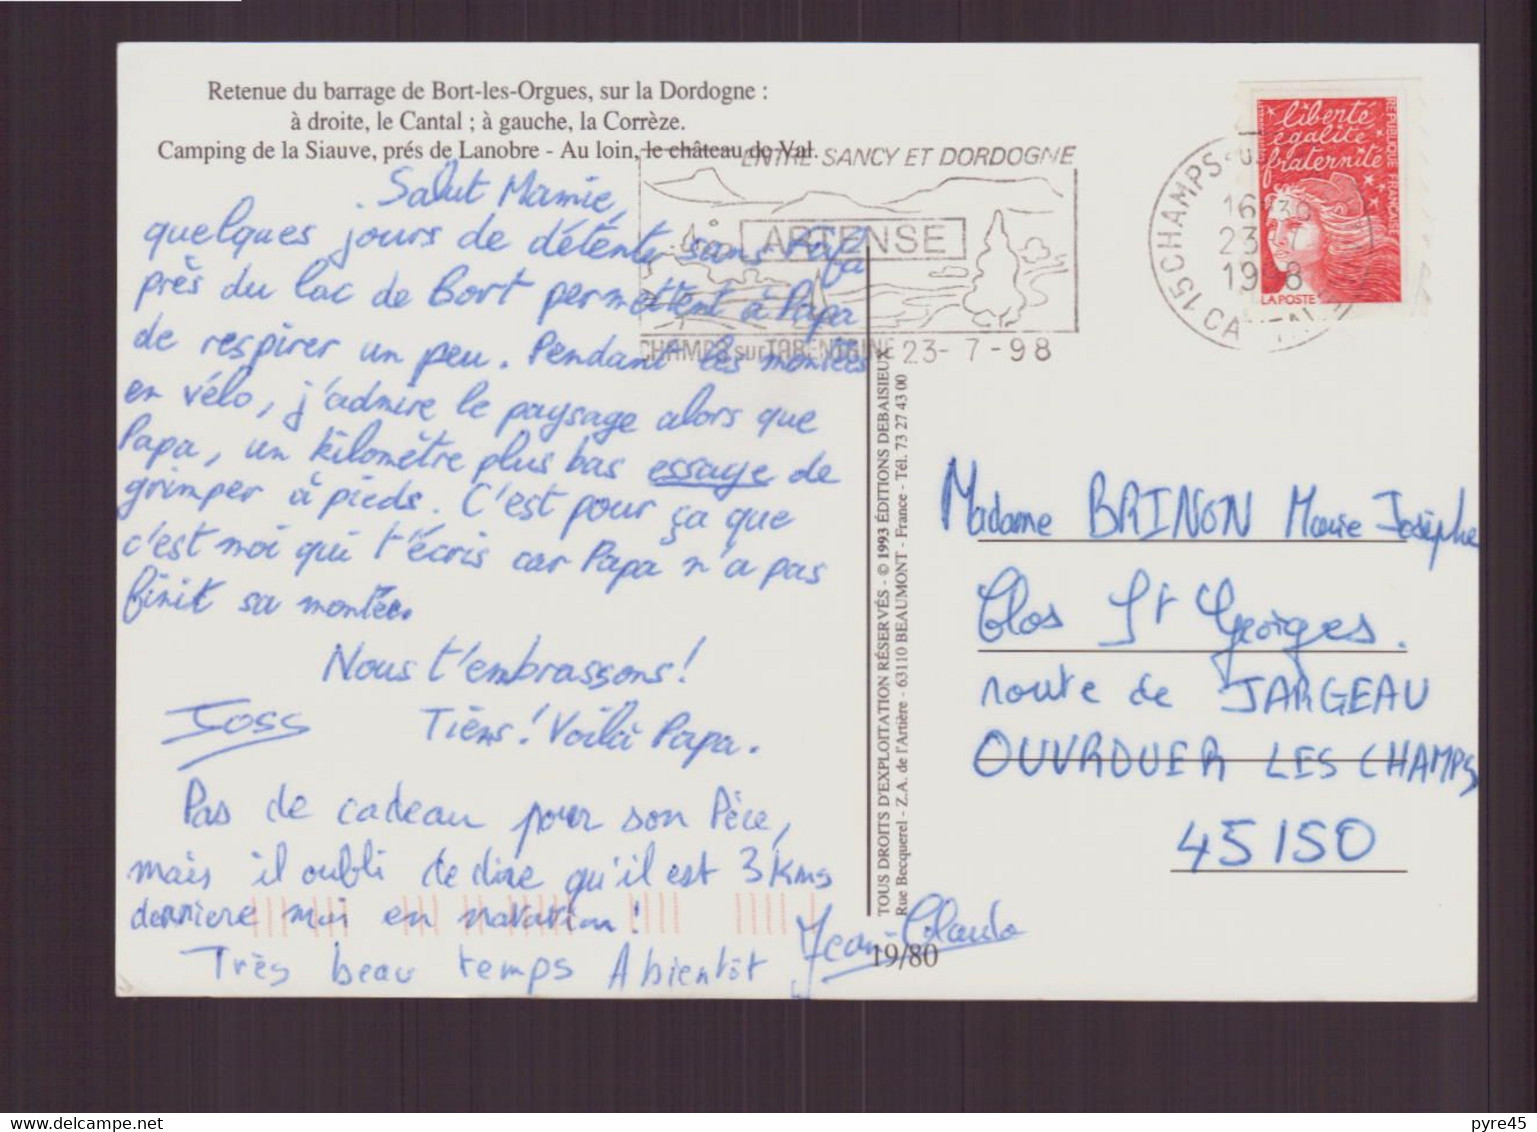 Retenue du barrage de Bort-les-Orgues, sur la Dordogne :
à droite, le Cantal ; à gauche, la Corrèze.
Camping de la Siauve, prés de Lanobre - Au loin, le château de Val.
Salut Mamie,
quelques jours de détente sans Papa
près du lac de Bort permettent à Papa
de respirer un peu. Pendant les montées
en vélo, j'admire le paysage alors que
Papa, un kilomètre plus bas essaye de
grimper à pieds. C'est pour ça que
c'est moi qui t'écris car Papa n'a pas
finit sa montée.
Nous t'embrassons!
Joss Tiens! Voilà Papa.
Pas de cadeau pour son Père,
mais il oubli de dire qu'il est 3 Kms
derriere moi en natation!
Très beau temps A bientôt
Jean-Claude
19/80
TOUS DROITS D'EXPLOITATION RÉSERVÉS - © 1993 ÉDITIONS DEBAISIEUX
Rue Becquerel - Z.A. de l'Artière - 63110 BEAUMONT - France - Tél. 73 27 43 00
ENTRE SANCY ET DORDOGNE
ARTENSE
CHAMPS sur TARENTAINE 23-7-98
15 CHAMPS SUR
16 H 30
23 7
1998
CANTAL
liberté
égalité
fraternité
REPUBLIQUE FRANCAISE
LA POSTE
Madame BRINON Marie Josèphe
Clos St Georges.
route de JARGEAU
OUVROUER LES CHAMPS
45150
pyre45